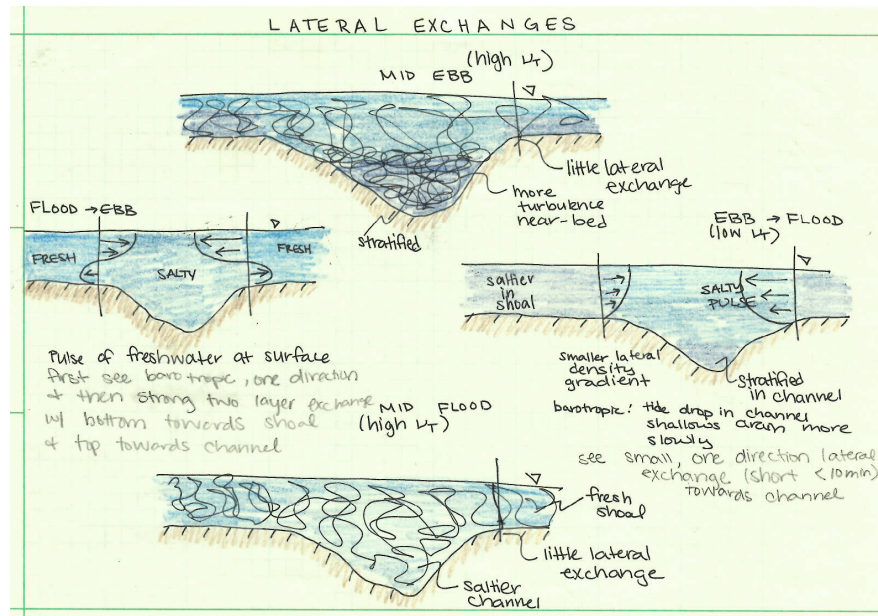 LATERAL EXCHANGES
MID EBB
(high νT)
little lateral
exchange
more
turbulence
near-bed
stratified
FLOOD → EBB
FRESH
SALTY
FRESH
Pulse of freshwater at surface
first see barotropic, one direction
+ then strong two layer exchange
w/ bottom towards shoal
+ top towards channel
EBB → FLOOD
(low νT)
saltier
in
shoal
SALTY
PULSE
smaller lateral
density
gradient
stratified
in channel
barotropic: tide drop in channel
shallows drain more
slowly
see small, one direction lateral
exchange (short <10min)
towards channel
MID FLOOD
(high νT)
fresh
shoal
little lateral
exchange
saltier
channel